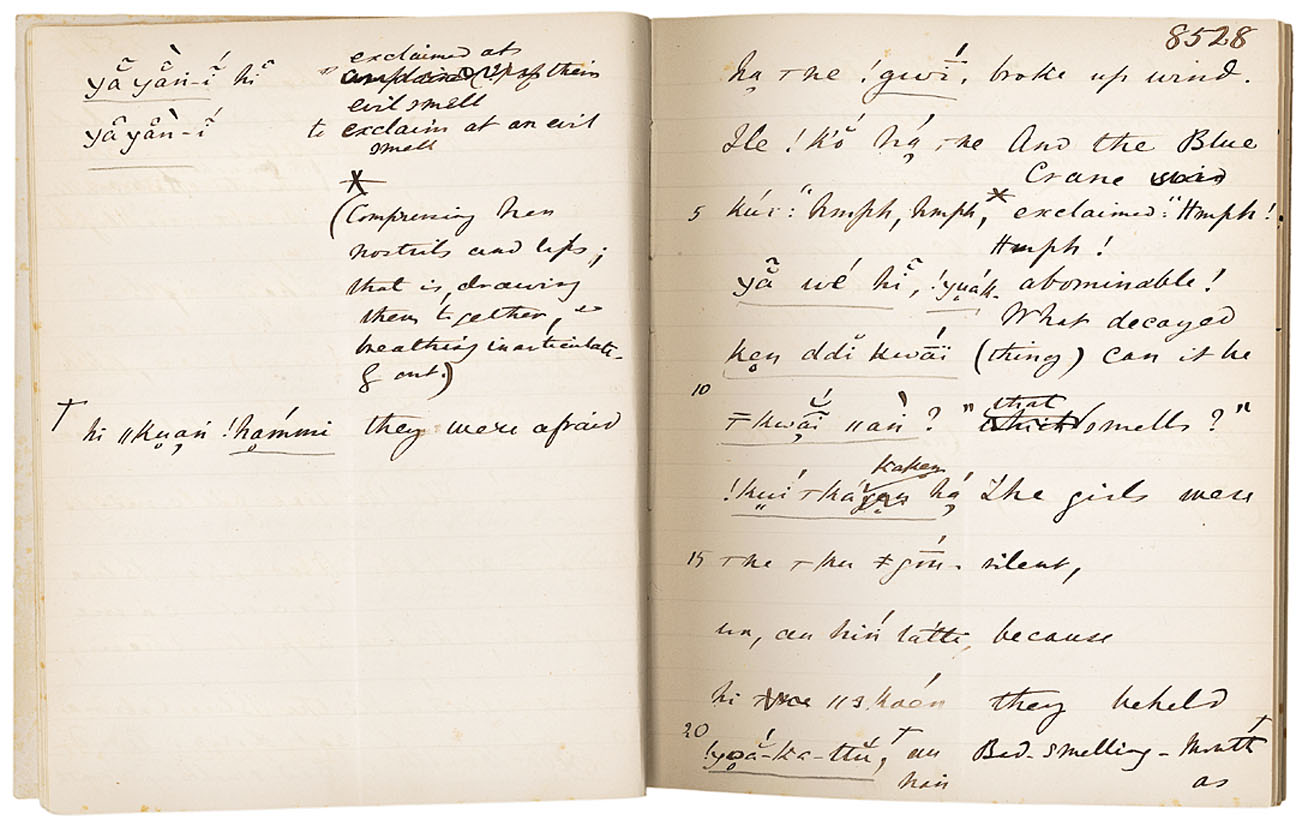 yã yãǹ-ĩ́ hĩ exclaimed at
their
evil smell
yã yãǹ-ĩ́ to exclaim at an evil
smell
X
(Compressing her
nostrils and lips;
that is, drawing
them together, &
breathing inarticulate-
ly out.)
† hi ǁkuań !hạ́mmi they were afraid
8528
hạ ⊤ne !gwī́, broke up wind.
He !kō̆ hạ́ ⊤ne And the Blue
Crane said
5 kúï: "hmph, hmph,X exclaimed: "Hmph!
Hmph!
yã wé hĩ, !yuák- abominable!
What decayed
ken ddĭ kwā́ï (thing) can it be
10
⊤kwā́ĭ ǁaǹ? " which that smells?"
kaken
!kuí ⊤ká hạ́ The girls were
15 ⊤ne ⊤ku ǂgṓu- silent,
un, au hiń tátti, because
hi ⊤ne ǁɜ kóén they beheld
20
!yoắ-ka-ttú,† au Bad-smelling-Mouth†
hań as